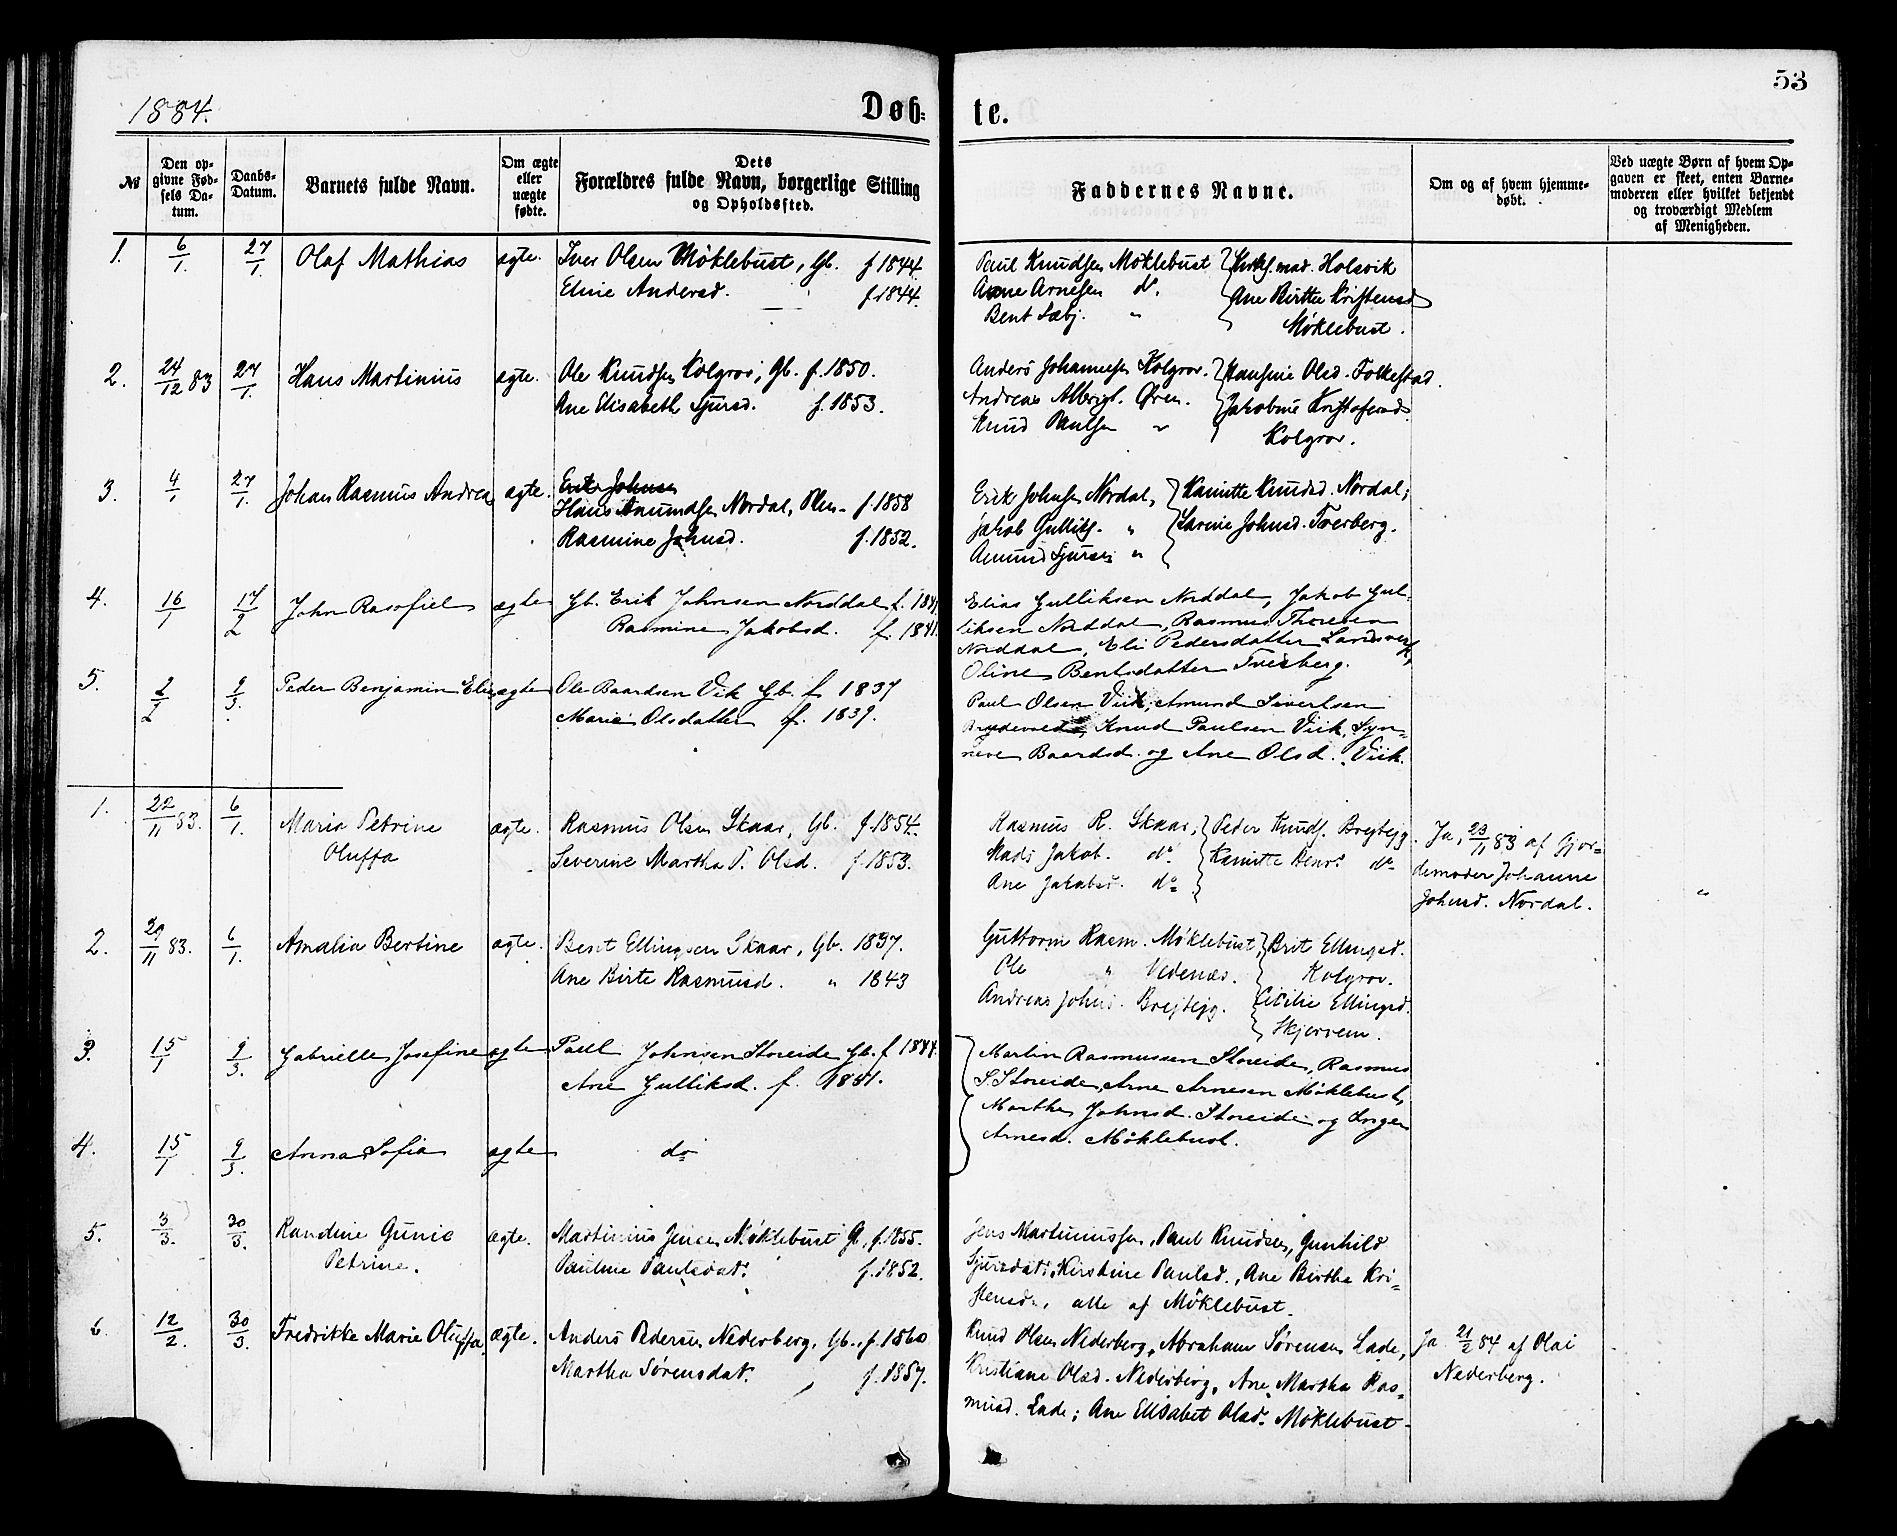 53
1884.
Døb- te.
№
Den op-
givne Fød-
sels Da-
tum.
Daabs-
Datum.
Barnets fulde Navn.
Om ægte
eller
uægte
fødte.
Dets
Forældres fulde Navn, borgerlige Stilling
og Opholdssted.
Faddernes Navne.
Om og af hvem hjemme-
døbt.
Ved uægte Børn af hvem Op-
gaven er skeet, enten Barne-
moderen eller hvilket bekjendt
og troværdigt Medlem
af Menigheden.
1. 6/1. 27/1. Olaf Mathias ægte. Iver Olsen Møklebust, Gb. f 1844.
Eline Andersd. f. 1844.
Paul Knudsen Møklebust
Arnesen do.
Bent
Holsvik
Ane Birthe Kristensd
Møklebust.
2. 24/12 83 27/1. Hans Martinius ægte. Ole Knudsen Kolgrov, Gb. f. 1850.
Ane Elisabeth Sjursd. f. 1853.
Anders Johannesen Kolgrov.
Andreas Albrigt. Øren.
Knud Paulsen "
Hansine Olsd. Folkestad.
Jakobine Kristofersd
Kolgrov.
3. 4/1 27/1. Johan Rasmus Andrea ægte. Erik Johnsen
Hans Amundsen Nordal, f. 1858
Rasmine Johnsd. f. 1852.
Erik Johnsen Nordal,
Jakob Gulliks. "
Amund Sjursen "
Kamitte Knudsd. Nordal;
Larine Johnsd. Tverberg.
4. 16/1 17/2 John Rasofiel ægte Gb. Erik Johnsen Norddal f. 1841.
Rasmine Jakobsd. f. 1841.
Elias Gulliksen Norddal, Jakob Gul-
liksen Norddal, Rasmus Thoresen
Norddal, Eli Pedersdatter
Oline Bentsdatter Tverberg.
5. 2/2 9/3. Peder Benjamin Elias ægte Ole Baardsen Vik Gb. f 1837
Marie Olsdatter f. 1839.
Paul Olsen Viik, Amund Sivertsen
Knud Paulsen Viik, Syn-
neve Baardsd. og Ane Olsd. Viik.
1. 22/11 83. 6/1. Maria Petrine
Oluffa
ægte. Rasmus Olsen Skaar, Gb. f. 1854.
Severine Martha P. Olsd. f 1853.
Rasmus R. Skaar,
Mads Jakob. do.
Ane Jakobsd. do
Peder Knuds. Brejtejg.
Kamitte do
Ja, 23/11 83 af Gjor-
demoder Johanne
Johnsd. Nordal.
"
2. 29/11 83. 6/1. Amalia Bertine ægte. Bent Ellingsen Skaar, Gb. 1837.
Ane Birte Rasmusd. " 1843
Guttorm Rasm. Møklebust,
Ole " Vedenæs.
Andreas Johns. Brejtejg.
Brit Ellingsd.
Kolgrov.
Cicilie Ellingsd.
Skjerrem.
3. 15/1 9/3. Gabrielle Josefine ægte Paul Johnsen Storeide Gb. f 1844.
Ane Gulliksd. f. 1841.
Martin Rasmussen Storeide, Rasmus
S. Storeide, Arne Arnesen Møklebust,
Marthe Johnsd. Storeide og Inger
Arnesd. Møklebust.
4. 15/1 9/3. Anna Sofia ægte do
5. 3/3. 30/3. Randine Gunie
Petrine.
ægte. Martinius Jensen Møklebust Gb. f. 1855.
Pauline Paulsdat. f. 1852.
Jens Martinussen, Paul Knudsen, Gunhild
Sjursdat., Kirstine Paulsd., Ane Birthe Kri-
stensd., alle af Møklebust.
6. 12/2. 30/3. Fredrikke Marie Oluffa. ægte. Anders Pedersen Nederberg, Gb. f. 1860
Martha Sørensdat. f. 1857.
Knud Olsen Nederberg, Abraham Sørensen Lade,
Kristiane Olsd. Nederberg, Ane Martha Ras-
musd. Lade; Ane Elisabet Olsd. Møklebust.
Ja 21/2 84 af Olai
Nederberg.